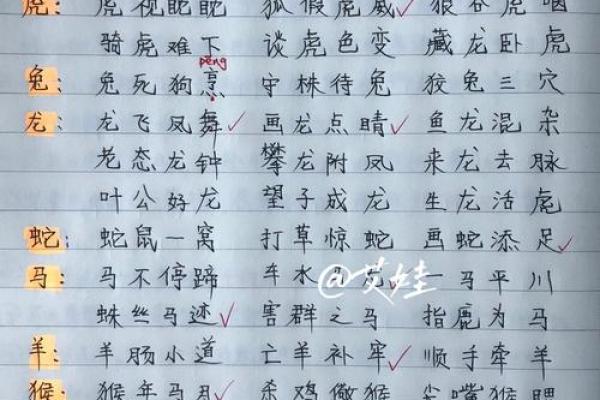 虎: 虎视眈眈 狐假虎威✓ 狼吞虎咽
骑虎难下 谈虎色变 藏龙卧虎
pēng
兔: 兔死狗烹 守株待兔 狡兔三穴
龙: 龙飞凤舞✓ 画龙点睛✓ 鱼龙混杂
老态龙钟 攀龙附凤 来龙去脉
叶公好龙 望子成龙 生龙活虎
蛇: 蛇鼠一窝 打草惊蛇 画蛇添足✓
马: 马不停蹄 车水马龙✓ 一马平川
@艾娃
蛛丝马迹✓ 害群之马 指鹿为马
羊: 羊肠小道 亡羊补牢✓ 顺手牵羊
猴: 猴年马月✓ 杀鸡儆猴 尖嘴猴腮